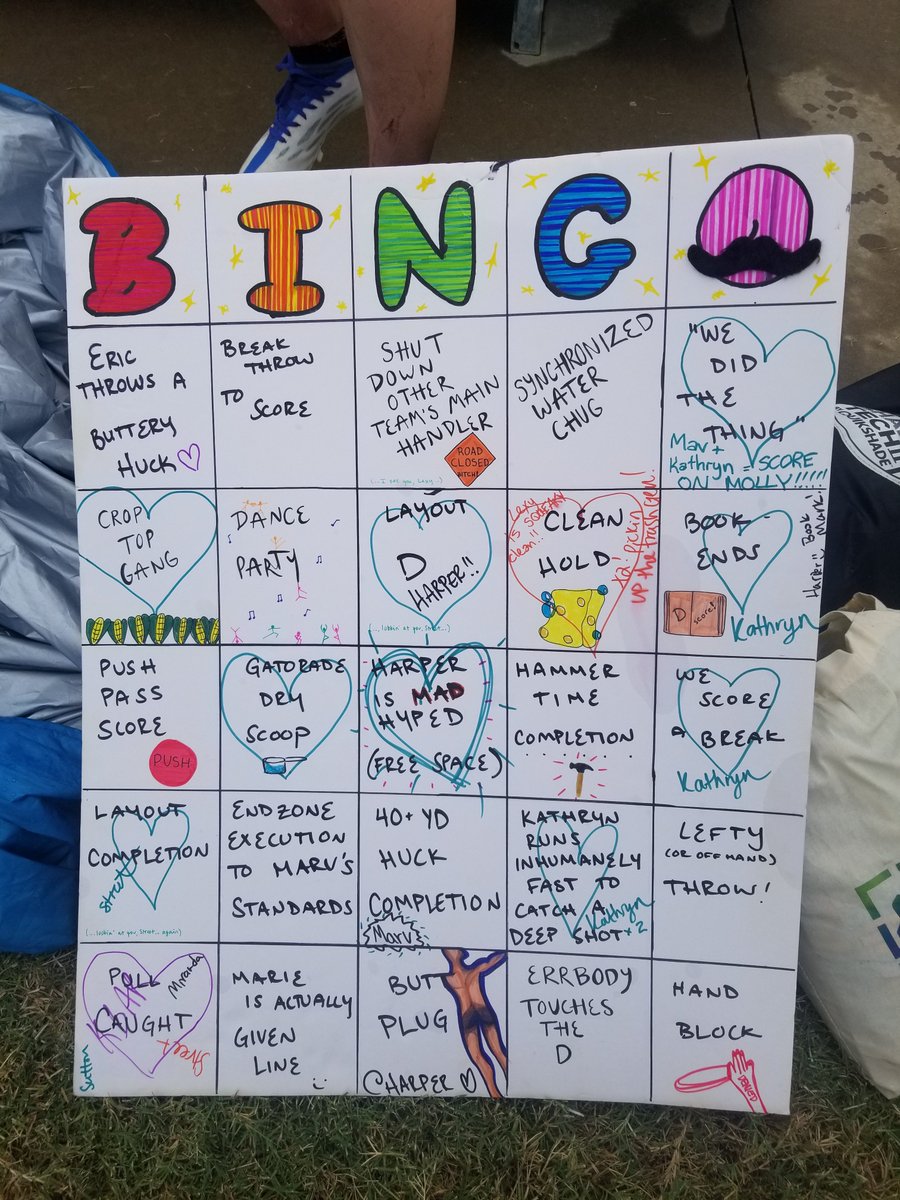 BINGO
ERIC
THROWS A
BUTTERY
HUCK
BREAK
THROW
TO
SCORE
SHUT
DOWN
OTHER
TEAM'S MAIN
HANDLER
ROAD
CLOSED
BITCH!
(...I see you, Lexy..)
SYNCHRONIZED
WATER
CHUG
"WE
DID
THE
THING"
Mav +
Kathryn = SCORE
ON MOLLY!!!!!
CROP
TOP
GANG
DANCE
PARTY
LAYOUT
D
HARPER!!
(...lookin' at you, Street...)
Lexy
is SQUEAKY
clean!!
CLEAN
HOLD
x2: Pickin
up the trash Jen!
BOOK-
ENDS
D
score!
Kathryn
Book
Harper!! Mark!
PUSH
PASS
SCORE
PUSH
GATORADE
DRY
SCOOP
HARPER
IS MAD
HYPED
(FREE SPACE)
HAMMER
TIME
COMPLETION
WE
SCORE
A BREAK
Kathryn
LAYOUT
COMPLETION
Street
(...lookin' at you, Street... again)
ENDZONE
EXECUTION
TO MARV'S
STANDARDS
40+ YD
HUCK
COMPLETION
Marv
KATHRYN
RUNS
INHUMANELY
FAST TO
CATCH A
DEEP SHOT x2
Kathryn
LEFTY
(OR OFF HAND)
THROW!
PULL
CAUGHT
Miranda
Street
Sutton
MARIE
IS ACTUALLY
GIVEN
LINE
BUT
PLUG
CHARPER
ERRBODY
TOUCHES
THE
D
HAND
BLOCK
DENIED